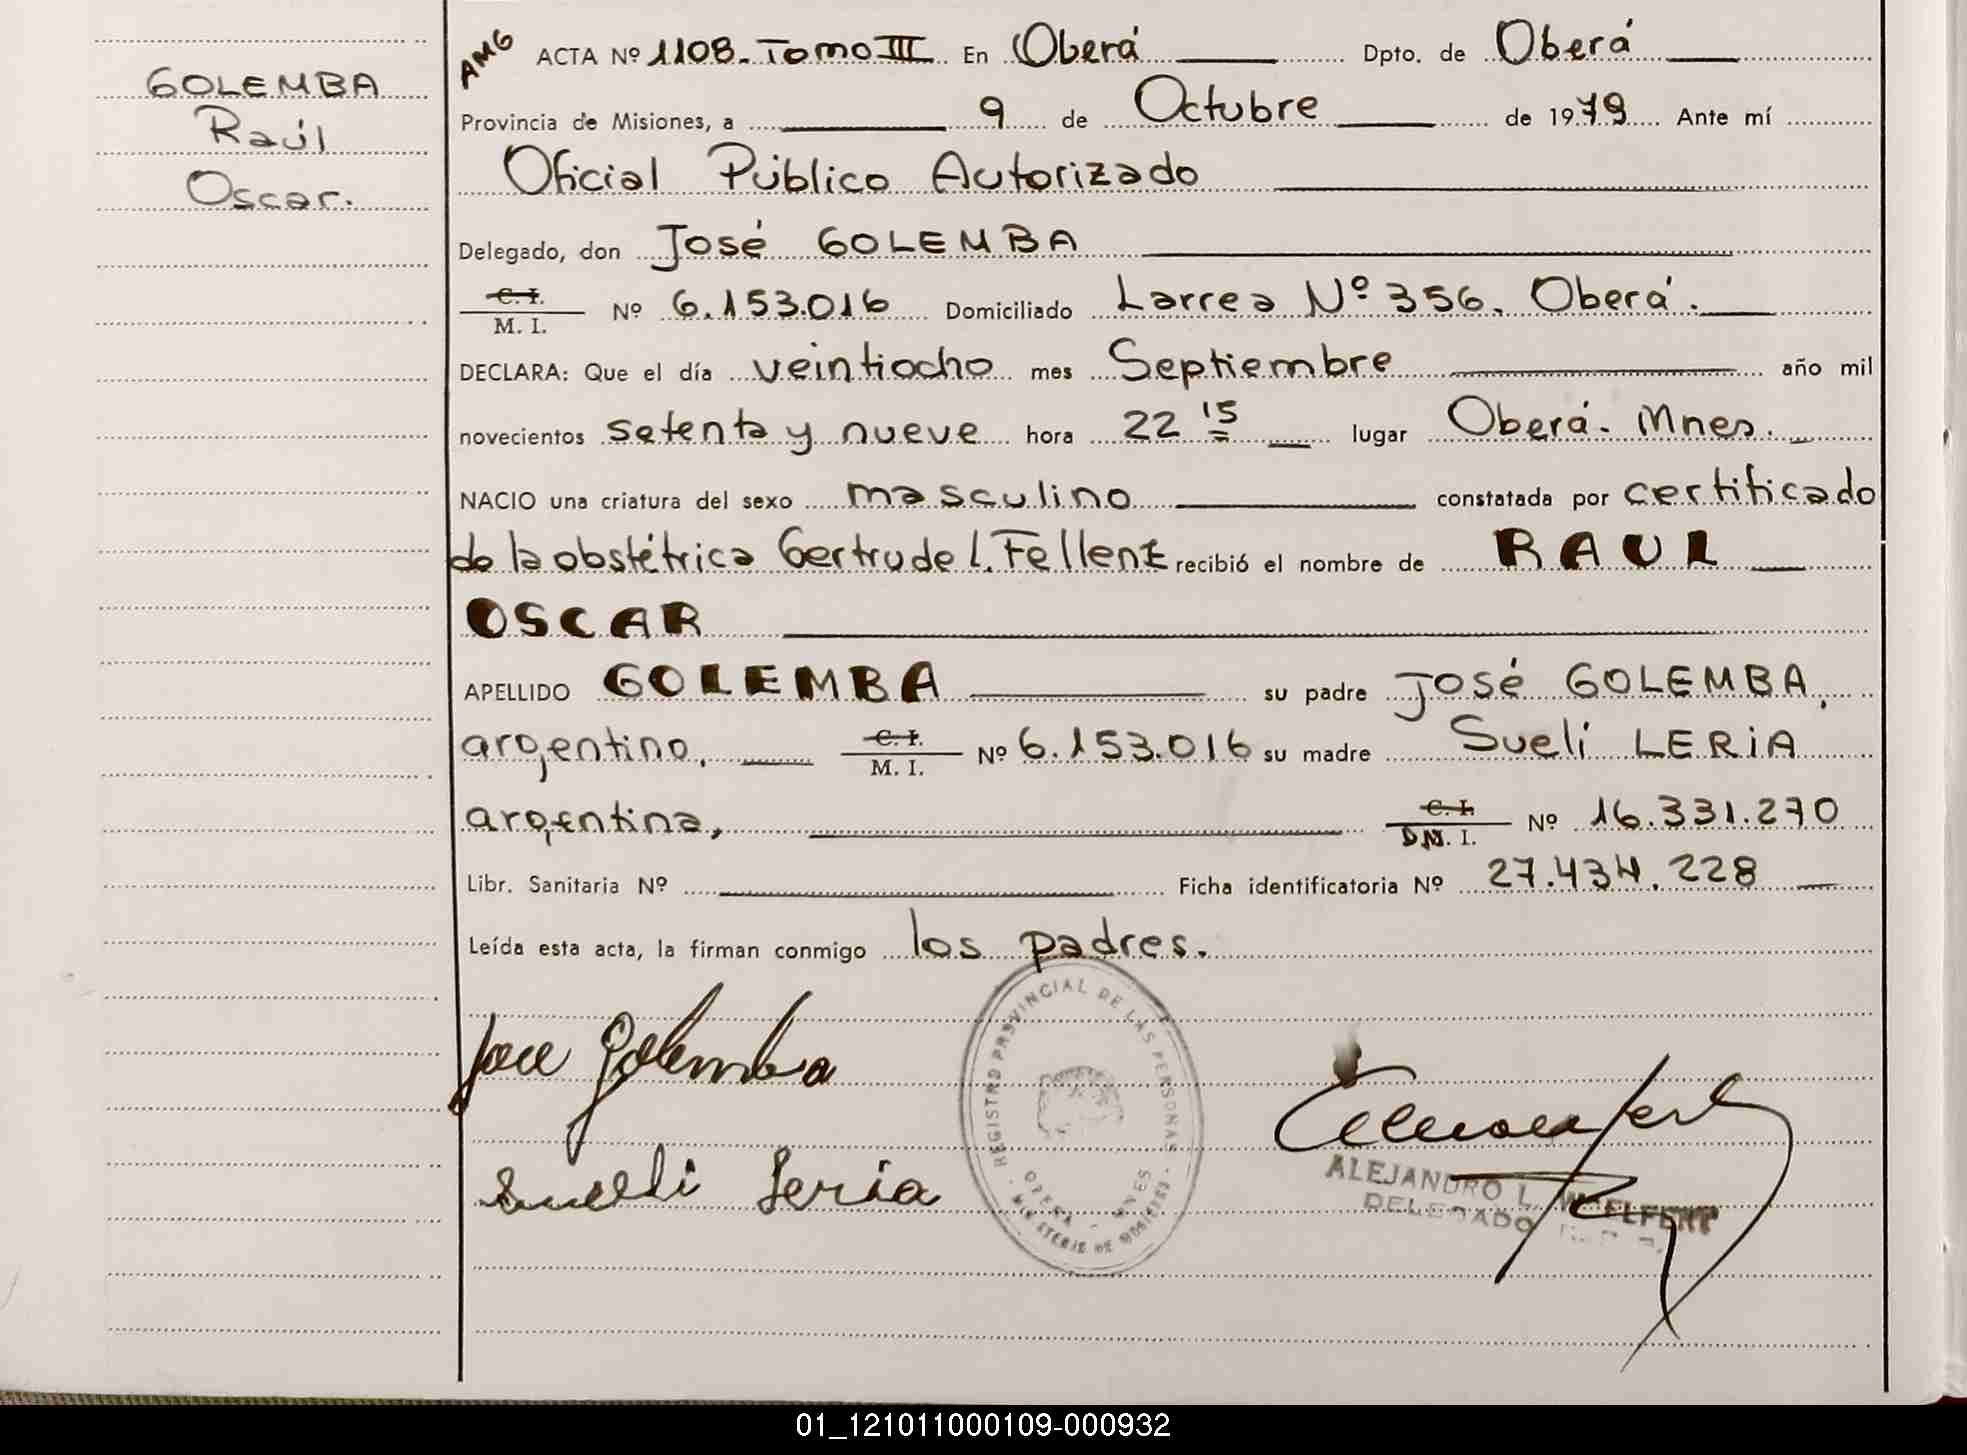 GOLEMBA
Raúl
Oscar.
AMG
ACTA Nº 1108. Tomo III En Oberá Dpto. de Oberá
Provincia de Misiones, a 9 de Octubre de 1979 Ante mí
Oficial Público Autorizado
Delegado, don José GOLEMBA
C. I.
M. I. Nº 6.153.016 Domiciliado Larrea Nº 356. Oberá.
DECLARA: Que el día veintiocho mes Septiembre año mil
novecientos setenta y nueve hora 22 15 lugar Oberá. Mnes.
NACIO una criatura del sexo masculino constatada por certificado
de la obstétrica Gertrude L. Fellenz recibió el nombre de RAUL
OSCAR
APELLIDO GOLEMBA su padre José GOLEMBA,
argentino, C. I.
M. I. Nº 6.153.016 su madre Sueli LERIA
argentina, C. I.
D.N. I. Nº 16.331.270
Libr. Sanitaria Nº Ficha identificatoria Nº 27.434.228
Leída esta acta, la firman conmigo los padres.
REGISTRO PROVINCIAL DE LAS PERSONAS
OBERA - MNES
MINISTERIO DE
Jose Golemba
Suelli Leria
ALEJANDRO L.
DELEGADO
01_121011000109-000932